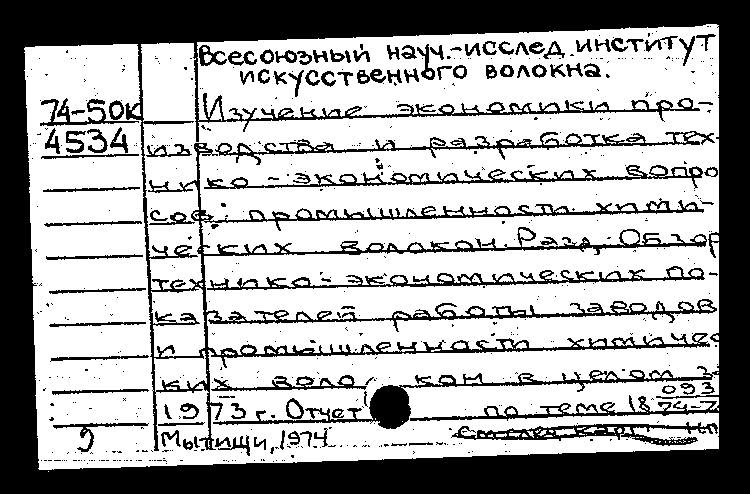 Всесоюзный науч.-исслед. институт
искусственного волокна.
74-50к Изучение экономики про-
4534 изводства и разработка тех-
нико-экономических вопро
сов: промышленности хими-
ческих волокон. Разд.: Обзор
технико-экономических по-
казателей работы заводов
и промышленности химичес
ких волокон в целом за
1973 г. Отчет по теме 18
093
74-7
Мытищи, 1974